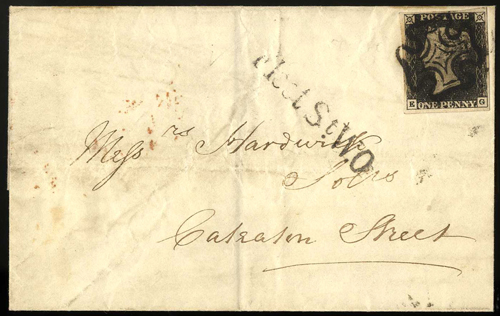 POSTAGE
E G
ONE PENNY
Fleet St. W.O
Mess rs Hardwick
Solrs
Cateaton Street